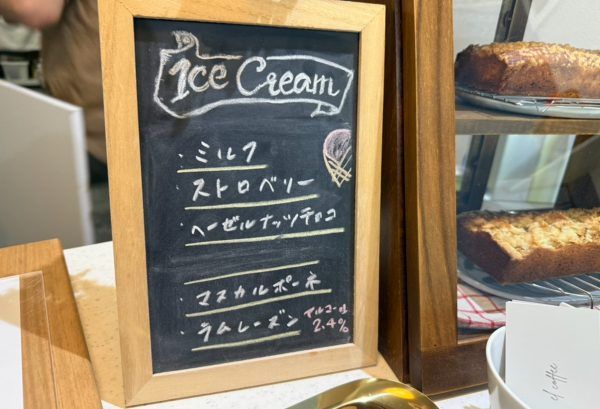 Ice Cream
・ミルク
・ストロベリー
・ヘーゼルナッツチョコ
・マスカルポーネ
・ラムレーズン
アルコール
2.4%
coffee